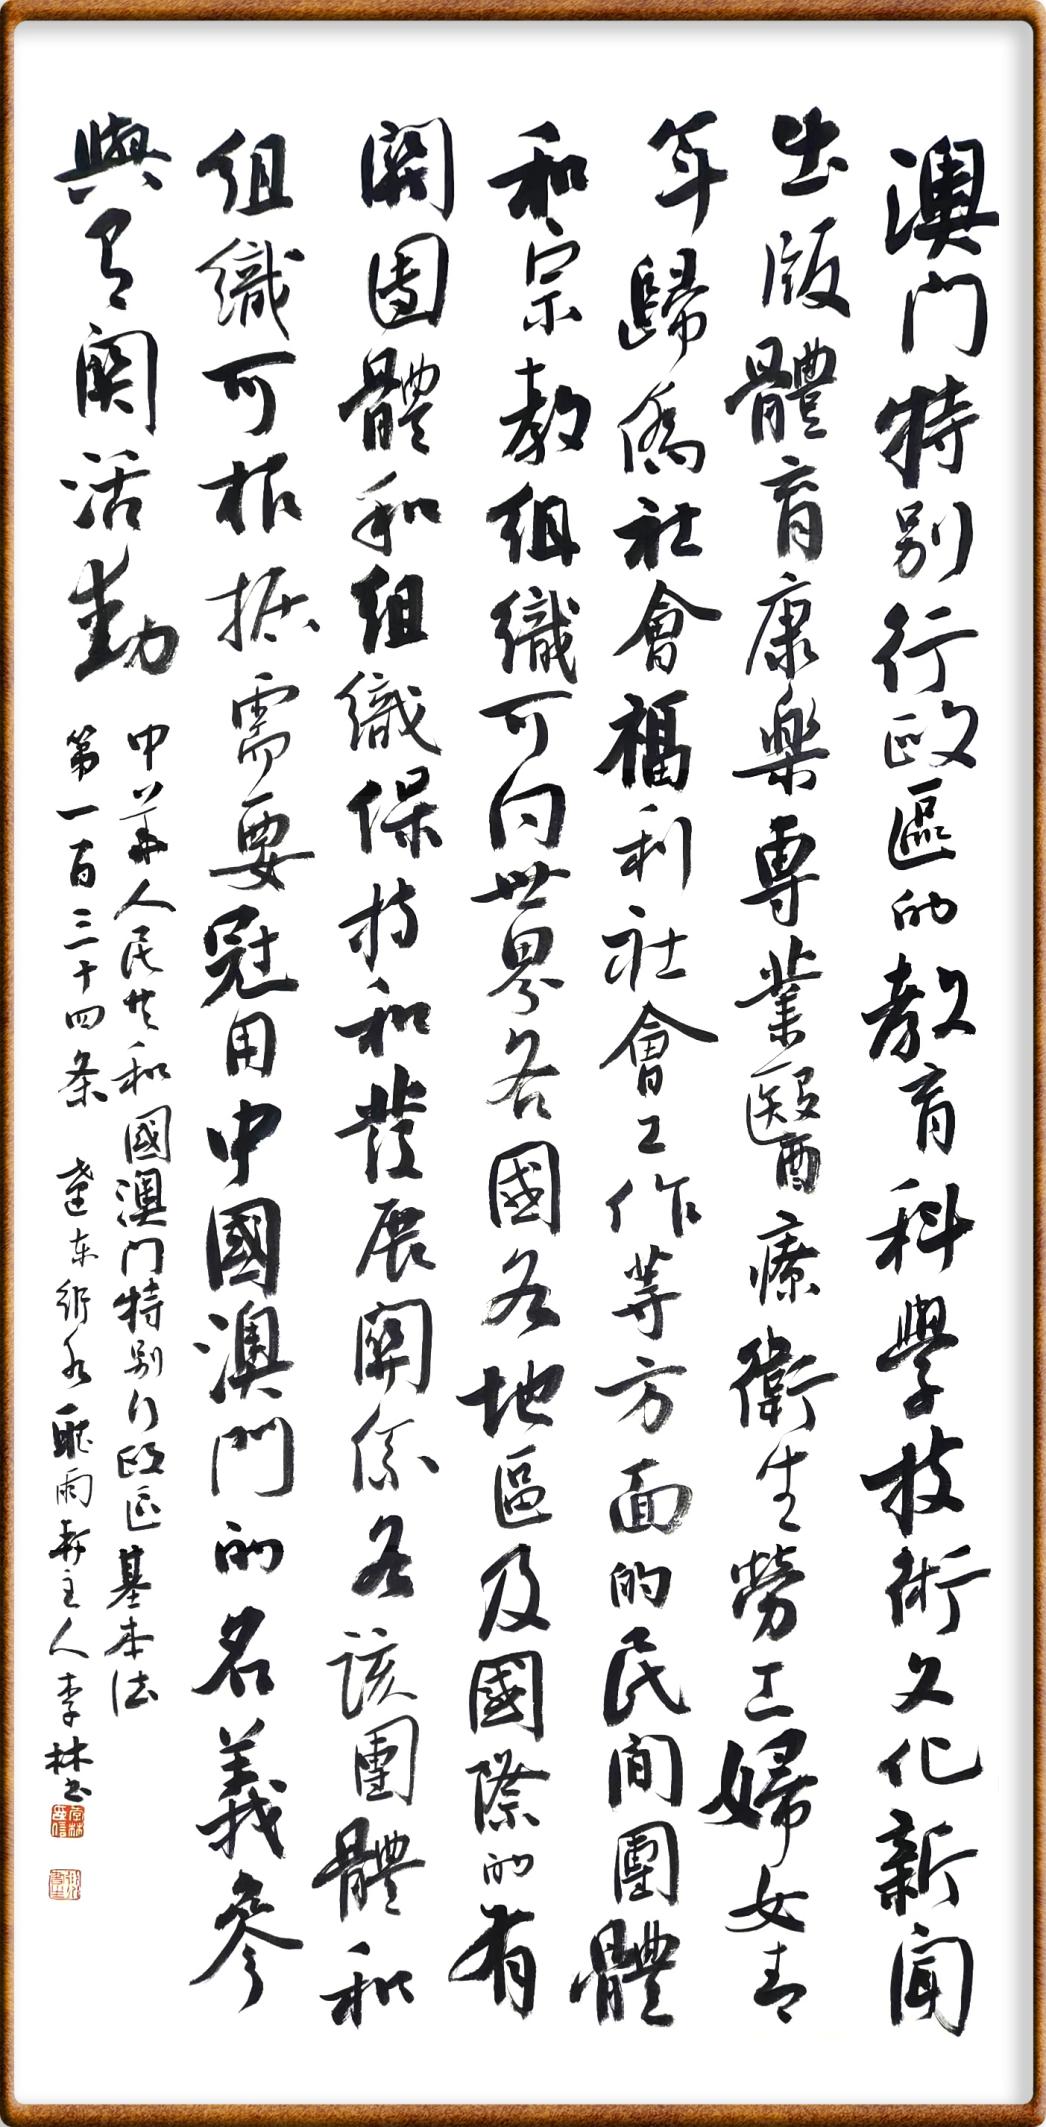 澳门特别行政區的教育科學技術文化新闻
出版體育康樂專業醫療衛生勞工婦女青
年歸僑社會福利社會工作等方面的民间團體
和宗教組織可向世界各國各地區及國際的有
關團體和組織保持和發展關係各該團體和
組織可根據需要冠用中國澳門的名義參
與有關活動
中華人民共和國澳门特别行政区基本法
第一百三十四条 遼东衍水聽雨軒主人李林书